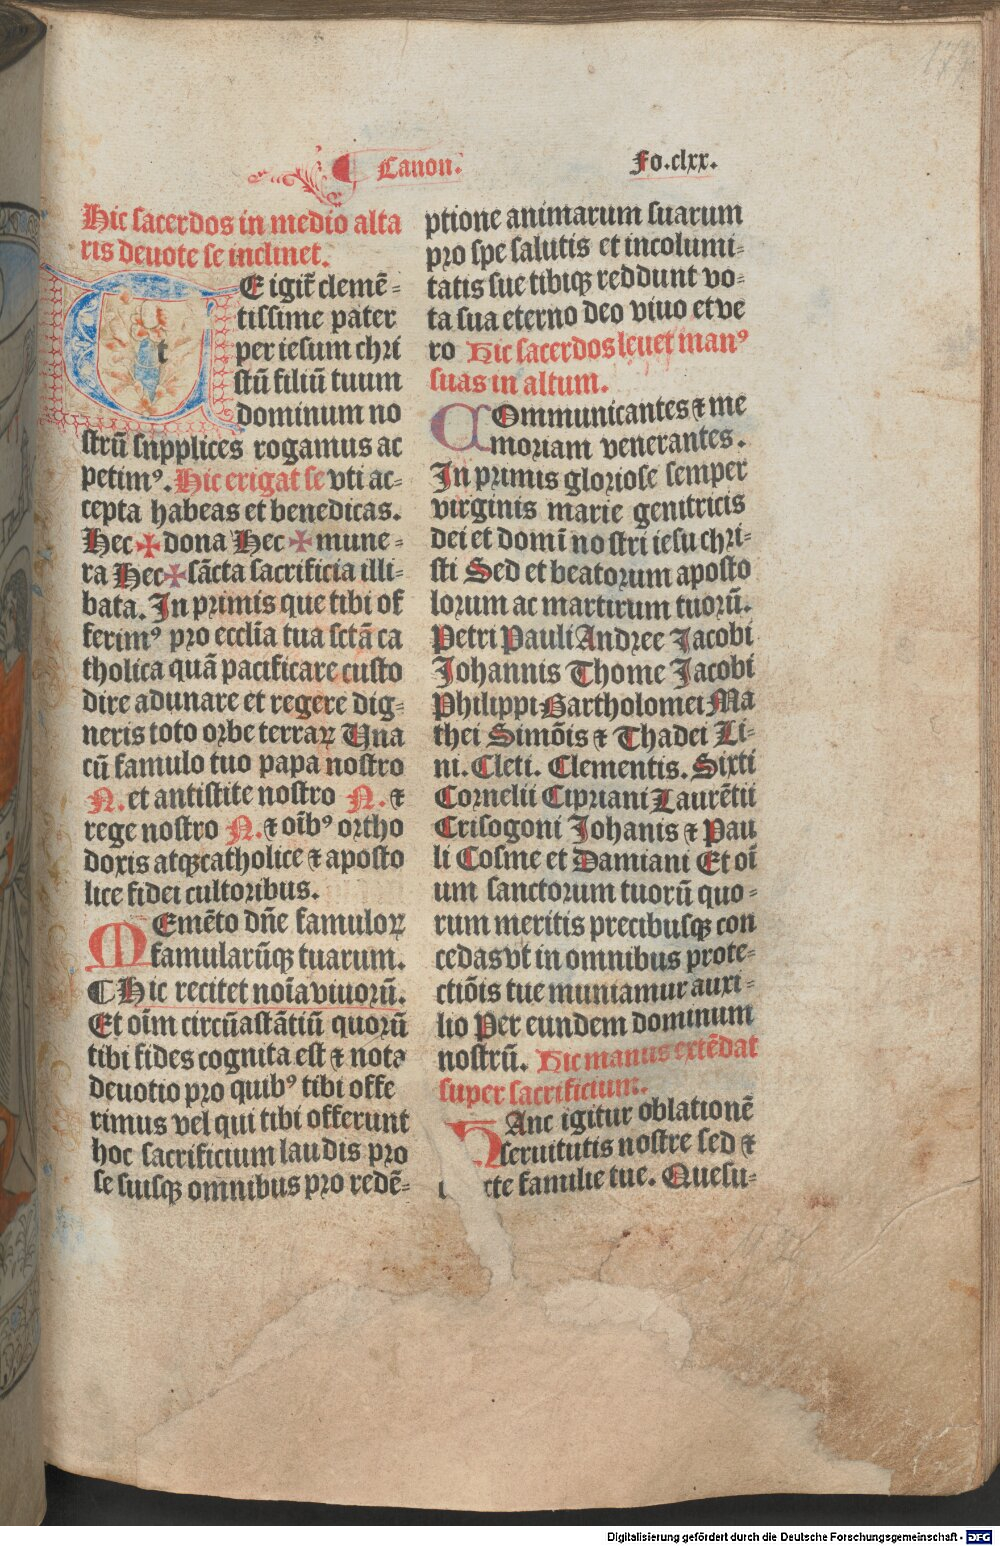 Canon.
Fo.clxx.
Hic sacerdos in medio alta
ris deuote se inclinet.
TE igit̄ clemē-
tissime pater
per iesum chri
stū filiū tuum
dominum no
strū snpplices rogamus ac
petimꝰ. Hic erigat se vti ac-
cepta habeas et benedicas.
Hec ✠ dona Hec ✠ mune-
ra Hec ✠ sācta sacrificia illi-
bata. In primis que tibi of
ferimꝰ pro eccl̄ia tua sctā ca
tholica quā pacificare custo
dire adunare et regere dig-
neris toto orbe terraꝝ Una
cū famulo tuo papa nostro
N. et antistite nostro N. ⁊
rege nostro N. ⁊ oībꝰ ortho
doxis atqꝫ catholice ⁊ aposto
lice fidei cultoribus.
MEmēto dn̄e famuloꝝ
famularūqꝫ tuarum.
¶ Hic recitet noīa viuorū.
Et oīm circūastātiū quorū
tibi fides cognita est ⁊ nota
deuotio pro quibꝰ tibi offe
rimus vel qui tibi offerunt
hoc sacrificium laudis pro
se suisqꝫ omnibus pro redē-
ptione animarum suarum
pro spe salutis et incolumi-
tatis sue tibiqꝫ reddunt vo-
ta sua eterno deo viuo et ve
ro Hic sacerdos leuet manꝰ
suas in altum.
COmmunicantes ⁊ me
moriam venerantes.
In primis gloriose semper
virginis marie genitricis
dei et domī nostri iesu chri-
sti Sed et beatorum aposto
lorum ac martirum tuorū.
Petri Pauli Andree Jacobi
Johannis Thome Jacobi
Philippi Bartholomei Ma
thei Simōis ⁊ Thadei Li-
ni. Cleti. Clementis. Sixti
Cornelii Cipriani Laurētii
Crisogoni Johanis ⁊ Pau
li Cosme et Damiani Et oī
um sanctorum tuorū quo-
rum meritis precibusqꝫ con
cedas vt in omnibus prote-
ctiōis tue muniamur auxi-
lio Per eundem dominum
nostrū. Hic manus extēdat
super sacrificium.
HAnc igitur oblationē
seruitutis nostre sed ⁊
cte familie tue. Quesu-
Digitalisierung gefördert durch die Deutsche Forschungsgemeinschaft - DFG